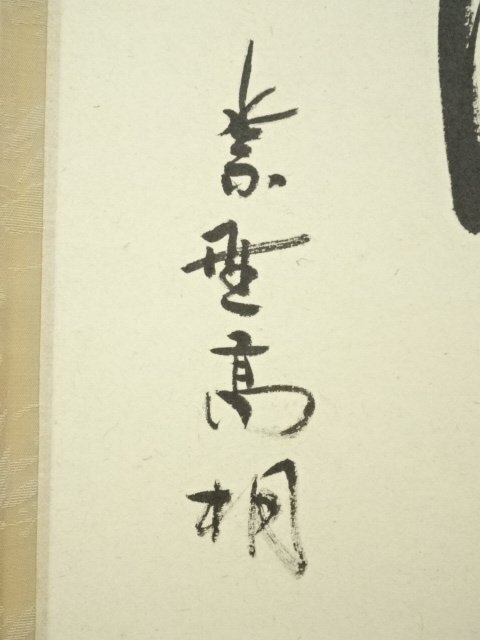 紫野高桐